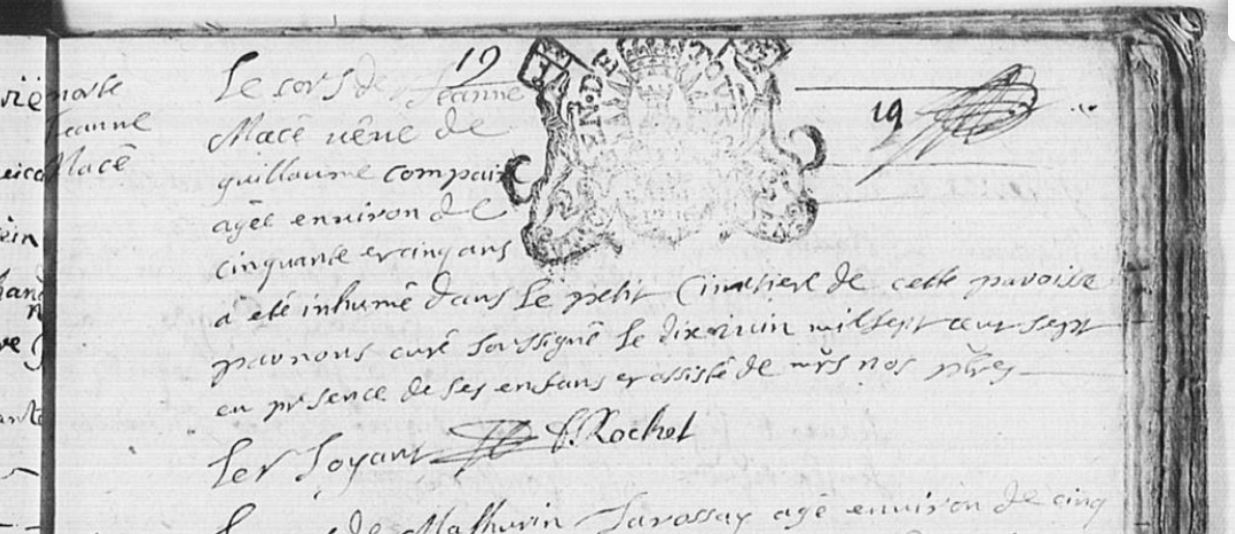 19
19
morte
Jeanne
Macé
Le corps de Jeanne
Macé veuve de
guillaume compain
agée environ de
cinquante et cinq ans
a eté inhumé dans le petit Cimetiere de cette paroisse
par nous curé soussigné le dix juin mil sept cent sept
en presence de ses enfans et assisté de mrs nos pbres
F. Rochet
de Mathurin agé environ de cinq